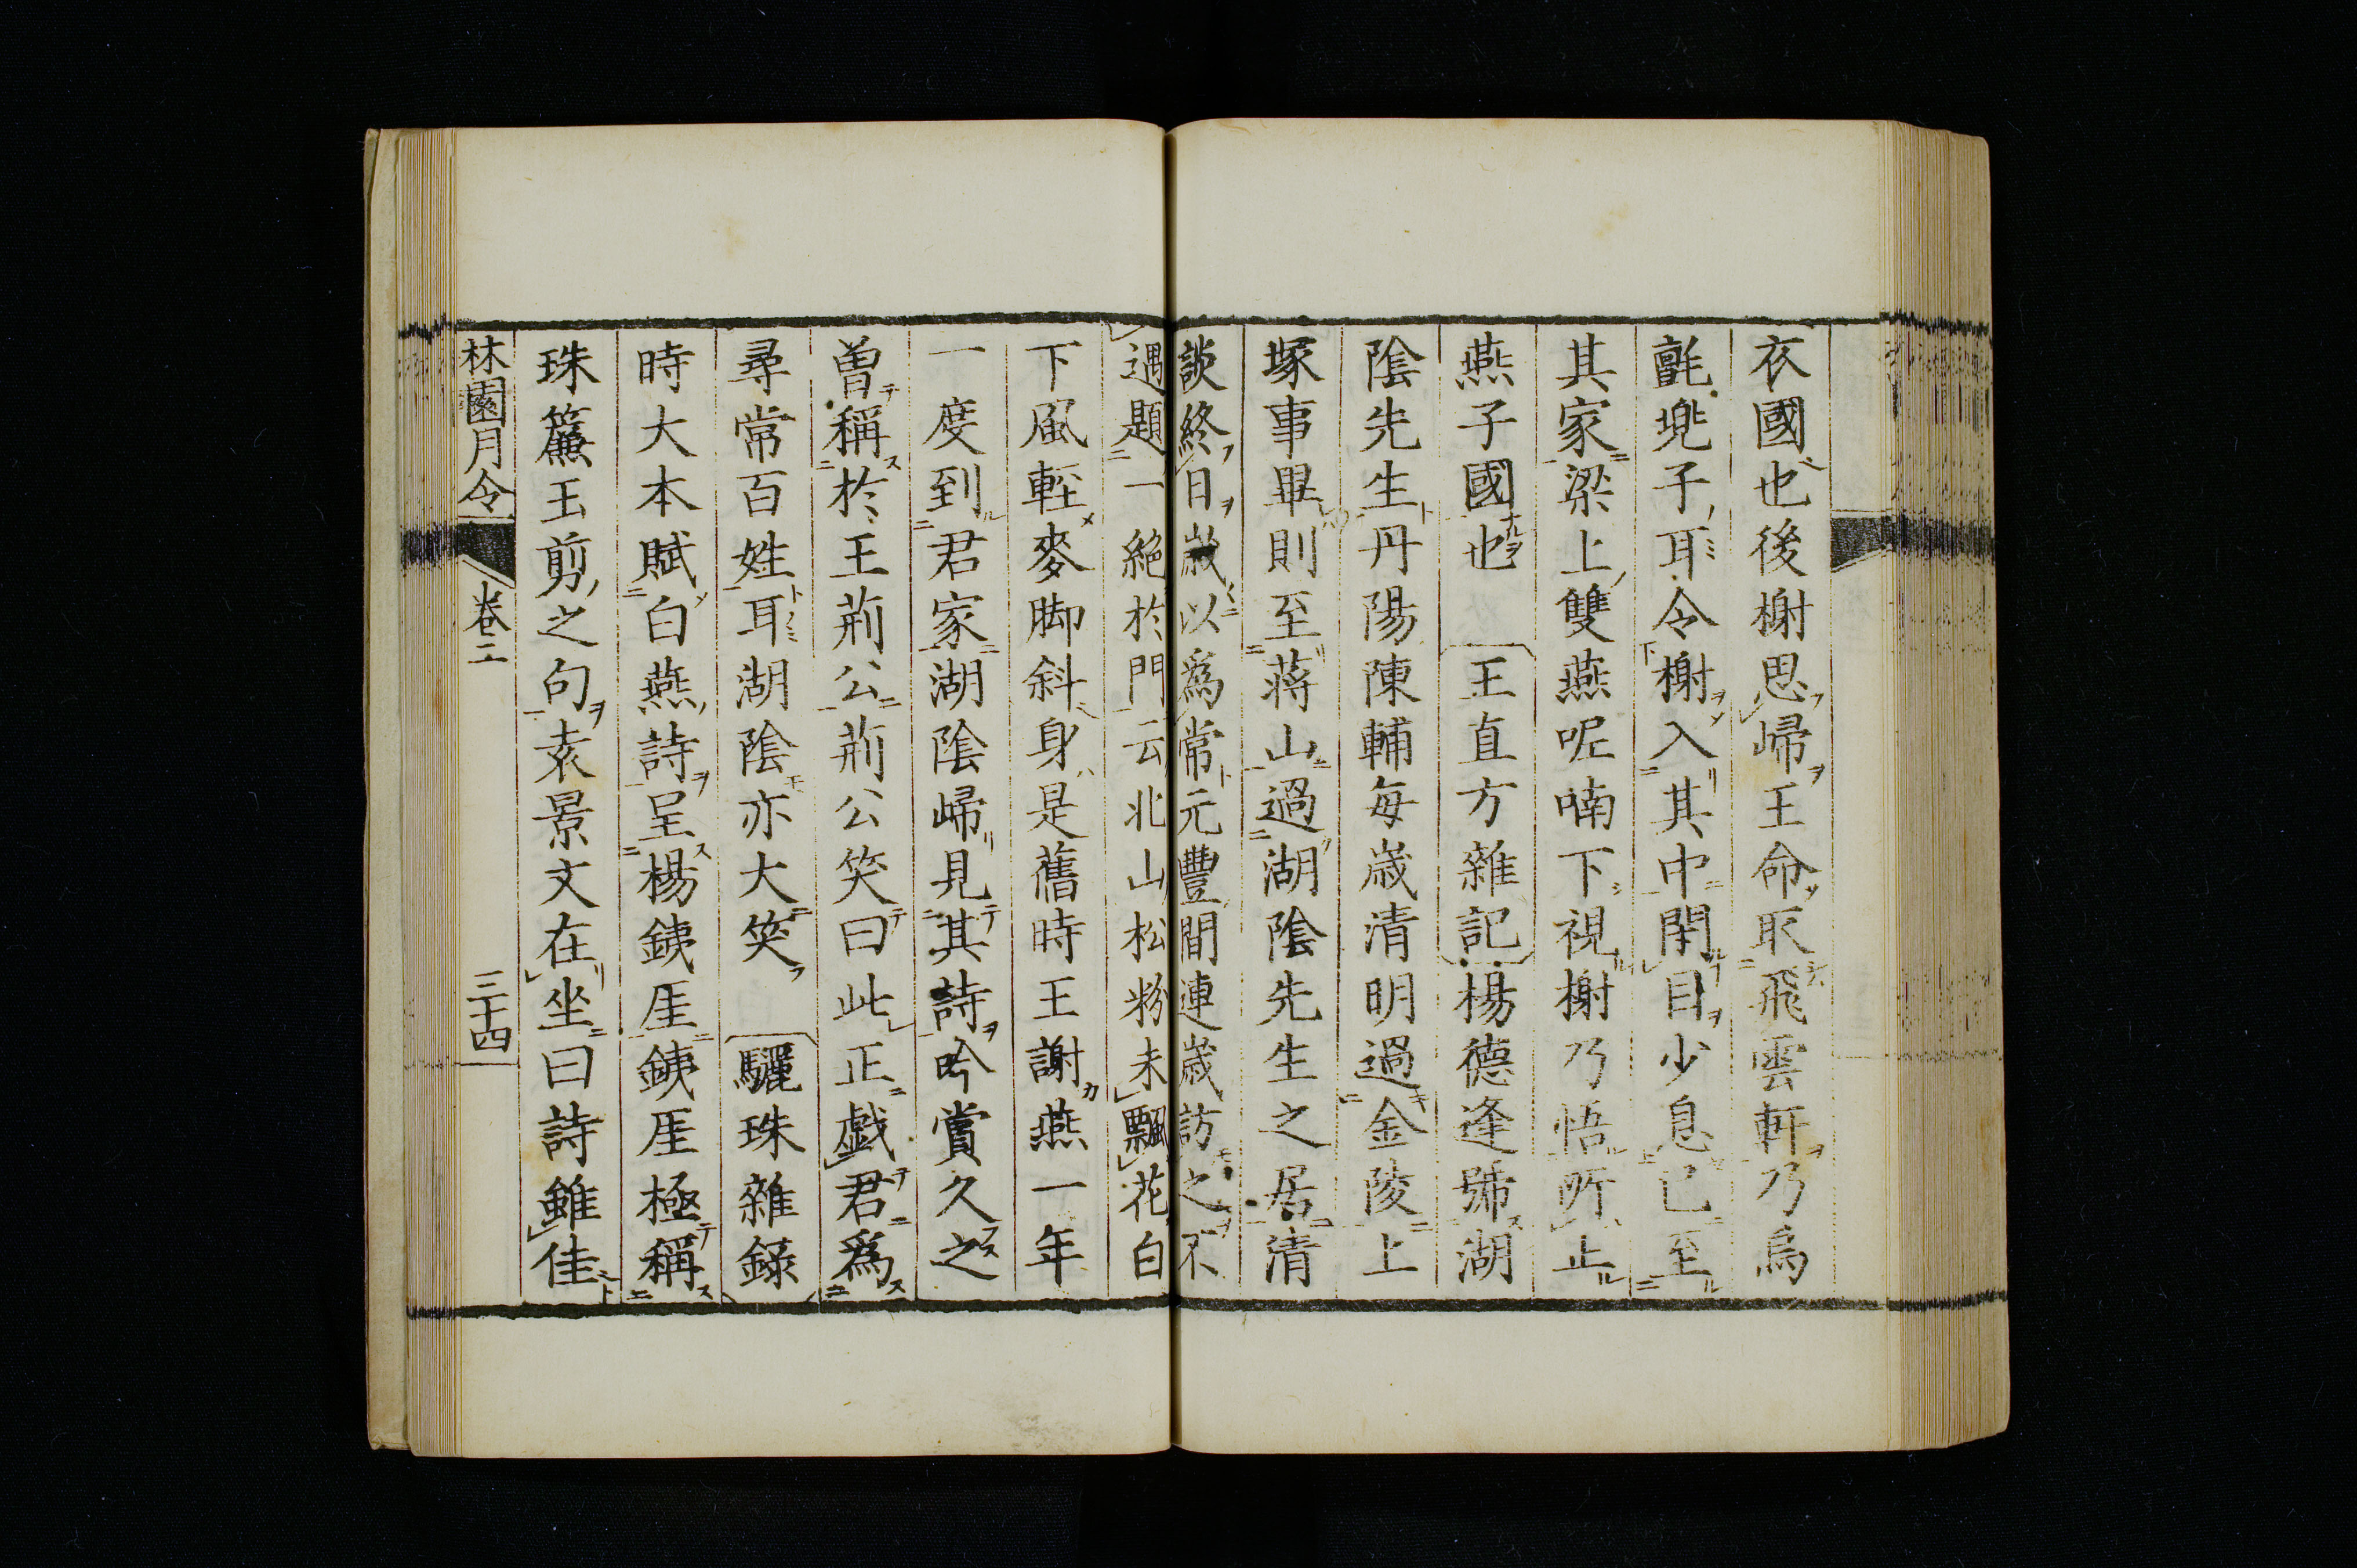 衣國也後榭思歸王命取飛雲軒乃烏
氈兠子耳令榭入其中閉目少息已至
其家梁上雙燕呢喃下視榭乃悟所止
燕子國也 王直方雜記 楊德逢號湖
陰先生丹陽陳輔每歲清明過金陵上
塚事畢則至蔣山過湖陰先生之居清
談終日歲以爲常元豐間連歲訪之不
遇題一絕於門云北山松粉未飄花白
下風輕麥脚斜身是舊時王謝燕一年
一度到君家湖陰歸見其詩吟賞久之
曽稱於王荊公荊公笑曰此正戱君爲
尋常百姓耳湖陰亦大笑 驪珠雜錄
時大本賦白燕詩呈楊鐵厓鐵厓極稱
珠簾玉剪之句袁景文在坐曰詩雖佳
林園月令 卷二 三十四